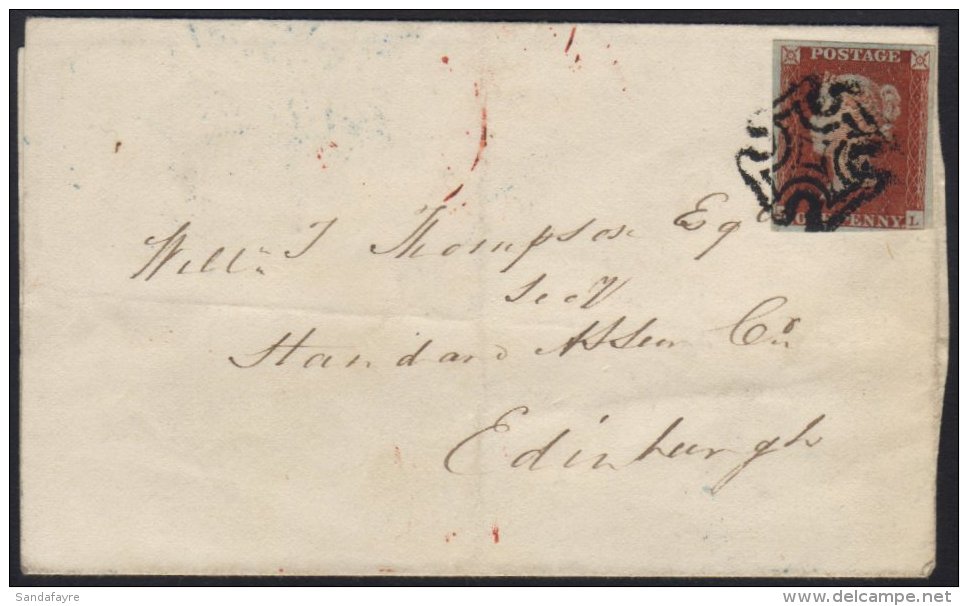 POSTAGE
PENNY L
Willm J Thompson Esqr
Secy
Standard Assur Co
Edinburgh
Sandafayre
www.delcampe.net